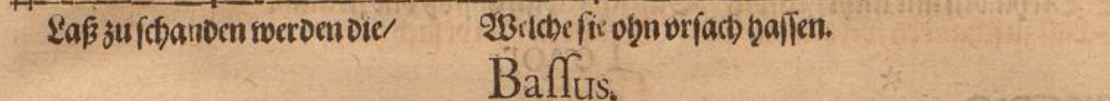 Laß zu ſchanden werden die/ Welche ſie ohn vrſach haſſen.
Baſſus.